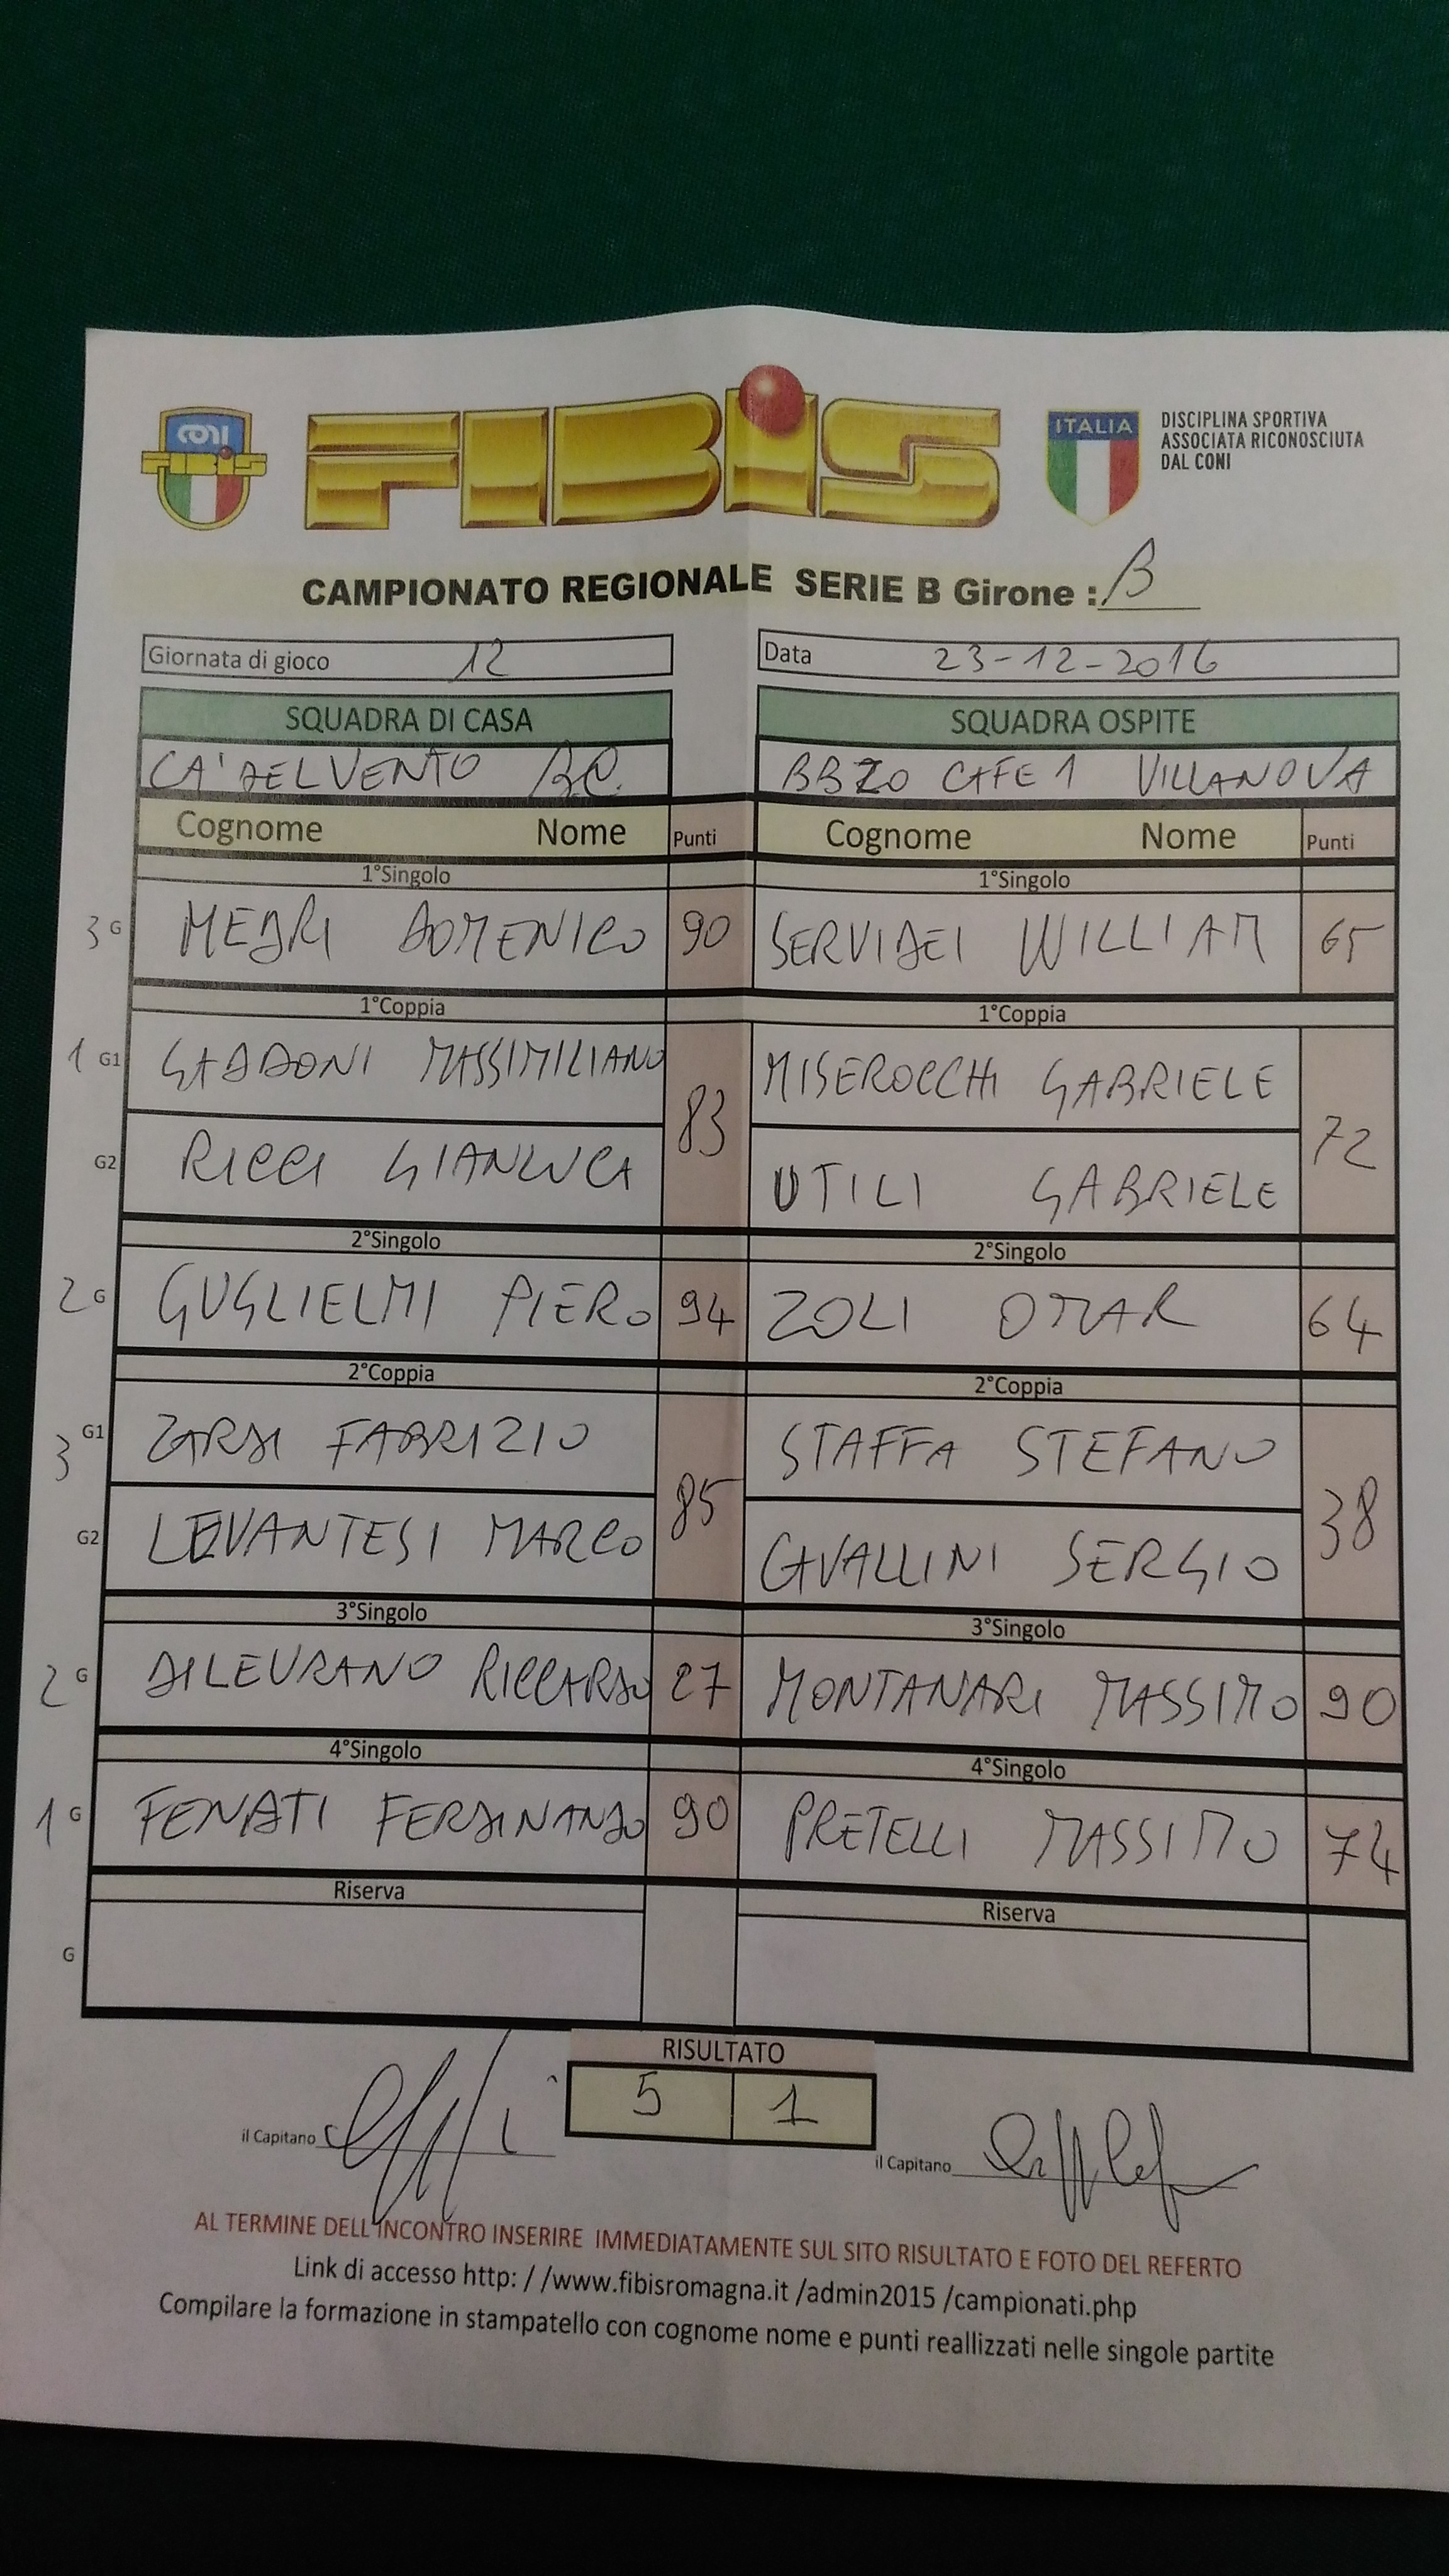 CONI
FIBIS
FIBiS
ITALIA
DISCIPLINA SPORTIVA
ASSOCIATA RICONOSCIUTA
DAL CONI
CAMPIONATO REGIONALE SERIE B Girone : B
Giornata di gioco 12
Data 23-12-2016
SQUADRA DI CASA
SQUADRA OSPITE
CA' DEL VENTO B.C.
BBZO CAFE 1 VILLANOVA
Cognome Nome Punti
Cognome Nome Punti
1°Singolo
1°Singolo
3 G MEDRI DOMENICO 90
SERVIDEI WILLIAM 65
1°Coppia
1°Coppia
1 G1 GADDONI MASSIMILIANO
MISEROCCHI GABRIELE
83
72
G2 RICCI GIANLUCA
UTILI GABRIELE
2°Singolo
2°Singolo
2 G GUGLIELMI PIERO 94
ZOLI OMAR 64
2°Coppia
2°Coppia
3 G1 ZARDI FABRIZIO
STAFFA STEFANO
85
38
G2 LEVANTESI MARCO
CAVALLINI SERGIO
3°Singolo
3°Singolo
2 G DILEVRANO RICCARDO 27
MONTANARI MASSIMO 90
4°Singolo
4°Singolo
1 G FENATI FERDINANDO 90
PRETELLI MASSIMO 74
Riserva
Riserva
G
RISULTATO
5 1
il Capitano
il Capitano
AL TERMINE DELL'INCONTRO INSERIRE IMMEDIATAMENTE SUL SITO RISULTATO E FOTO DEL REFERTO
Link di accesso http: / /www.fibisromagna.it /admin2015 /campionati.php
Compilare la formazione in stampatello con cognome nome e punti reallizzati nelle singole partite